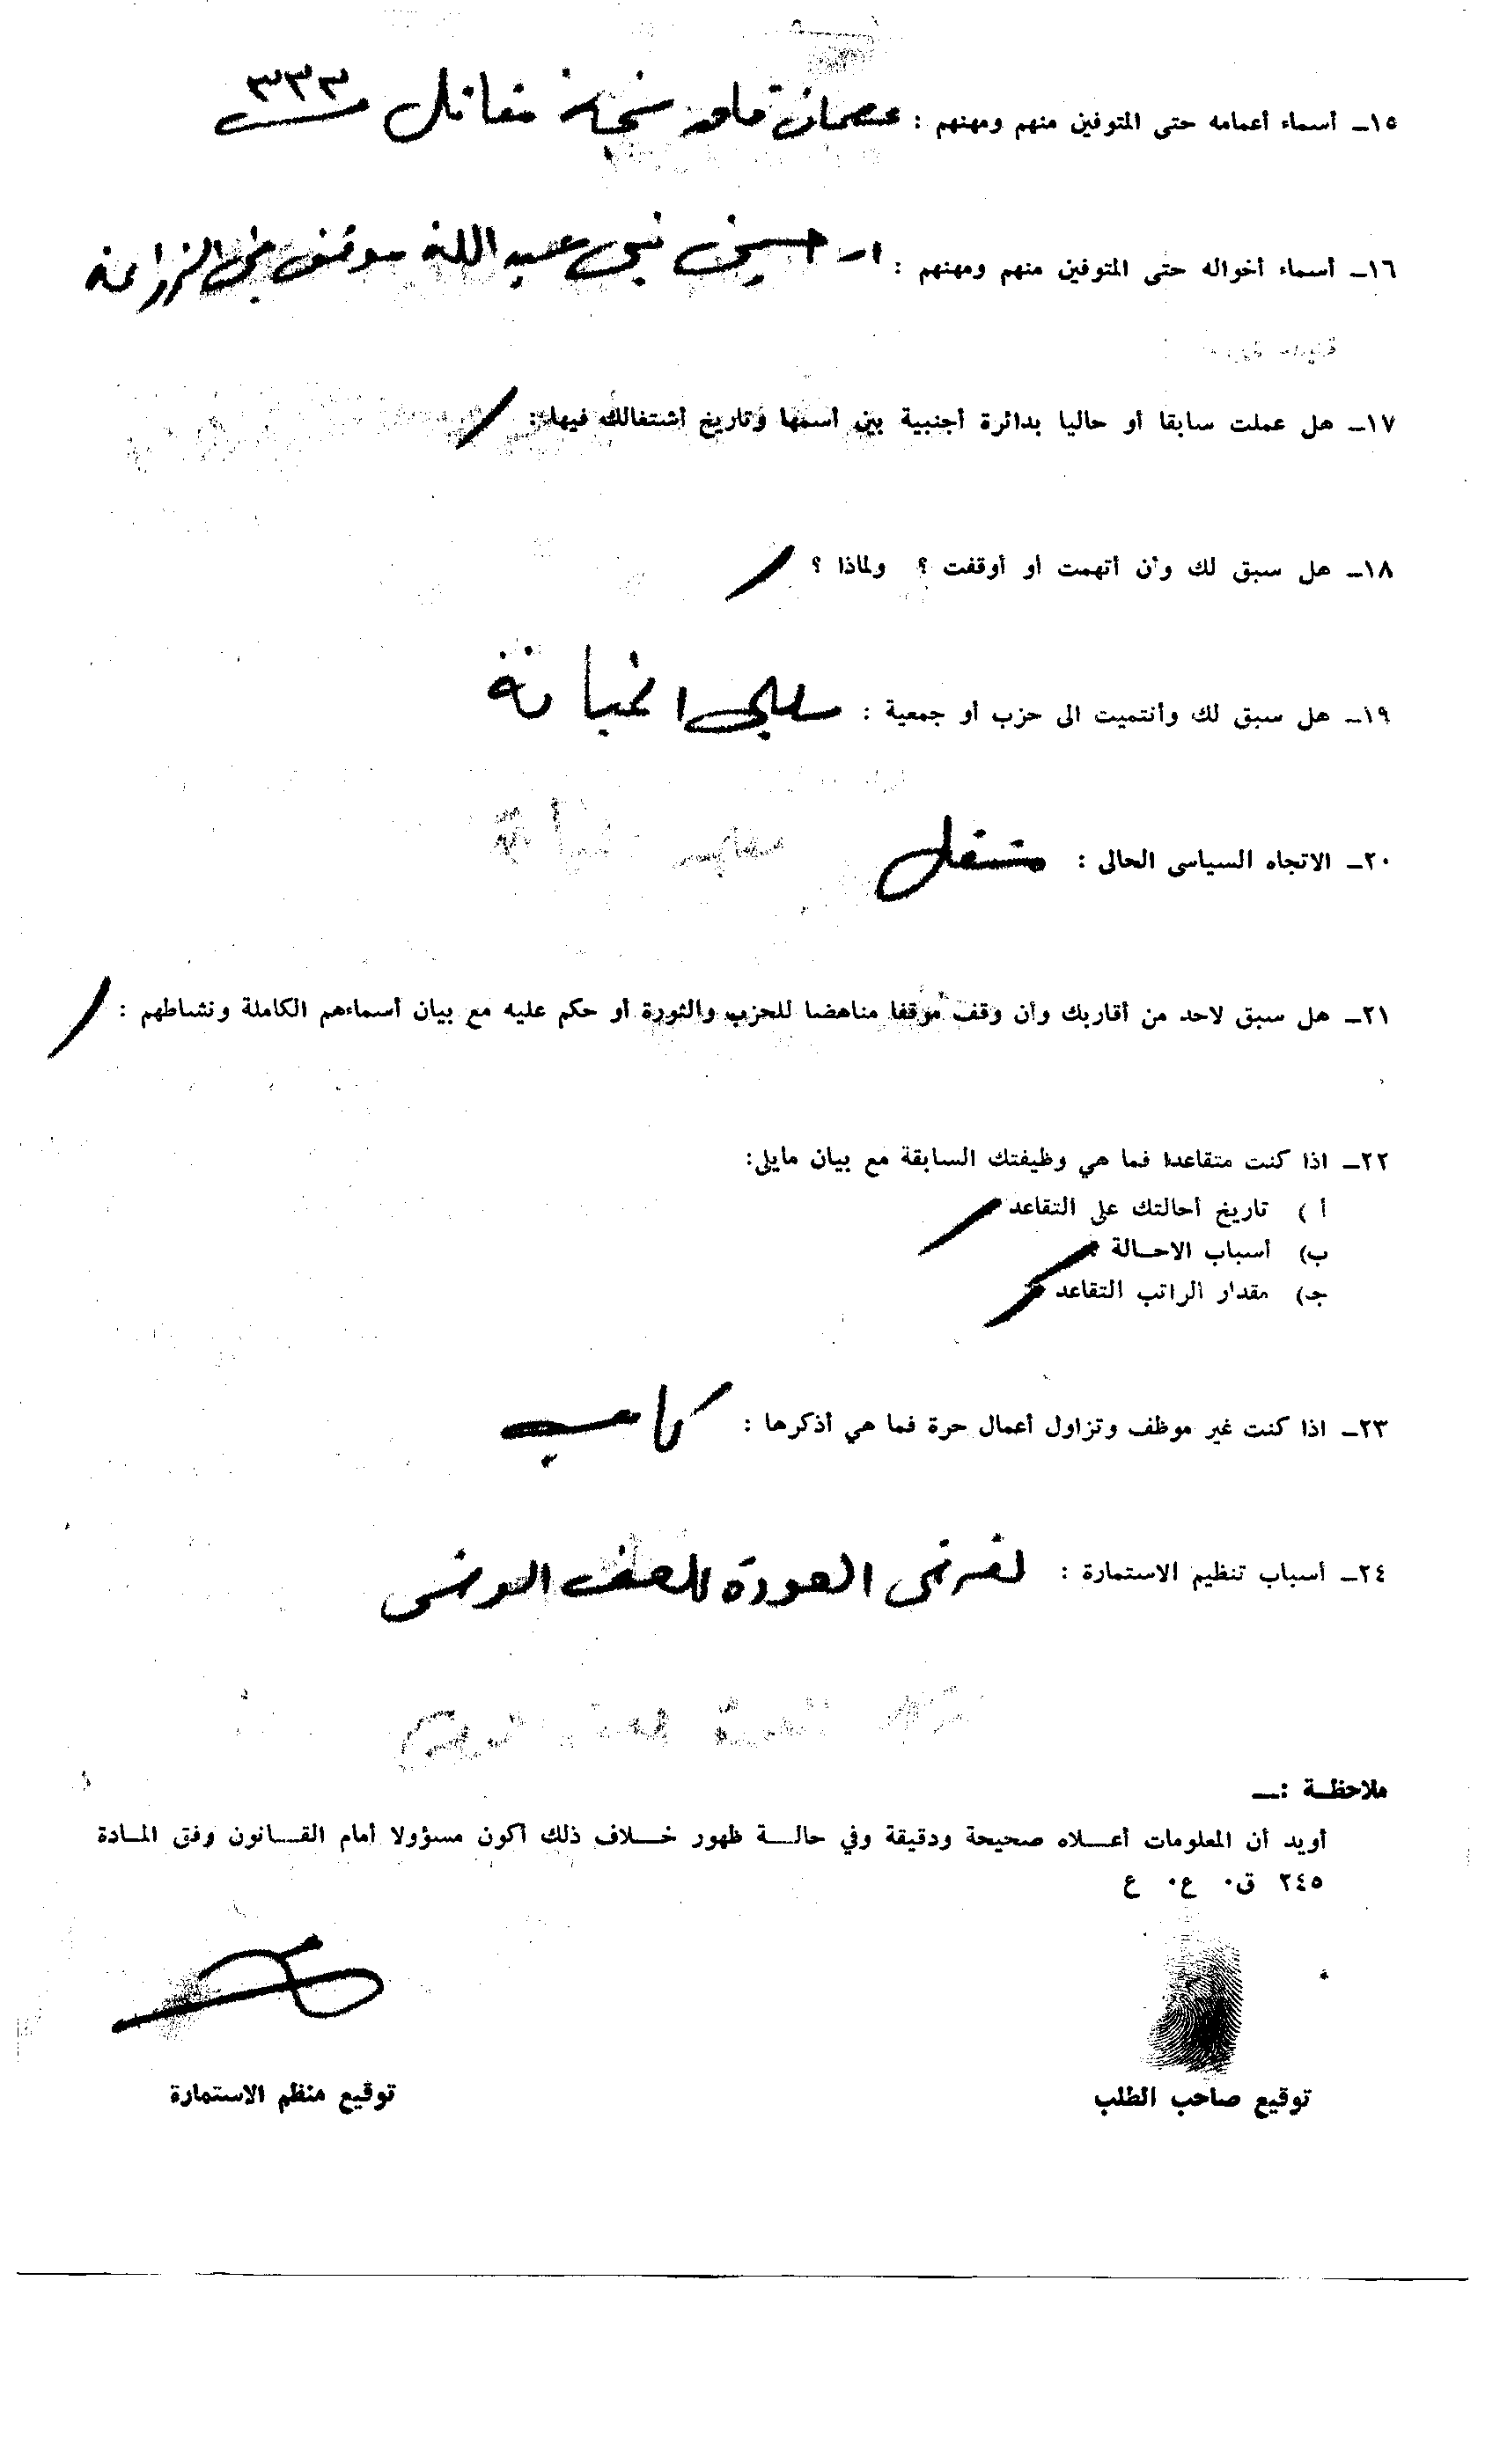 ١٥ـ أسماء أعمامه حتى المتوفين منهم ومهنهم : عصمان مقاتل ٣٣٣
١٦ـ أسماء أخواله حتى المتوفين منهم ومهنهم : ١ـ حسين نبي عبدالله موظف في الزراعة
١٧ـ هل عملت سابقا أو حاليا بدائرة أجنبية بين أسمها وتاريخ أشتغالك فيها : /
١٨ـ هل سبق لك وأن أتهمت أو أوقفت ؟ ولماذا ؟ /
١٩ـ هل سبق لك وأنتميت الى حزب أو جمعية : سليلي الخيانة
٢٠ـ الاتجاه السياسي الحالي : مستقل
٢١ـ هل سبق لاحد من أقاربك وأن وقف موقفا مناهضا للحزب والثورة أو حكم عليه مع بيان أسماءهم الكاملة ونشاطهم : /
٢٢ـ اذا كنت متقاعدا فما هي وظيفتك السابقة مع بيان مايلي:
أ ) تاريخ أحالتك على التقاعد /
ب) أسباب الاحـالة : /
جـ) مقدار الراتب التقاعد /
٢٣ـ اذا كنت غير موظف وتزاول أعمال حرة فما هي أذكرها : كاسب
٢٤ـ أسباب تنظيم الاستمارة : لغرض العودة للصف الوطني
ملاحظـة :ــ
أويد أن المعلومات أعـــلاه صحيحة ودقيقة وفي حالـــة ظهور خـــلاف ذلك أكون مسؤولا أمام القـــانون وفق المـادة
٢٤٥ ق٠ ع٠ ع
توقيع صاحب الطلب
توقيع منظم الاستمارة